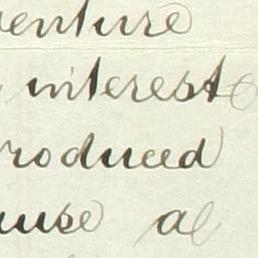 venture
interest
roduced
use a